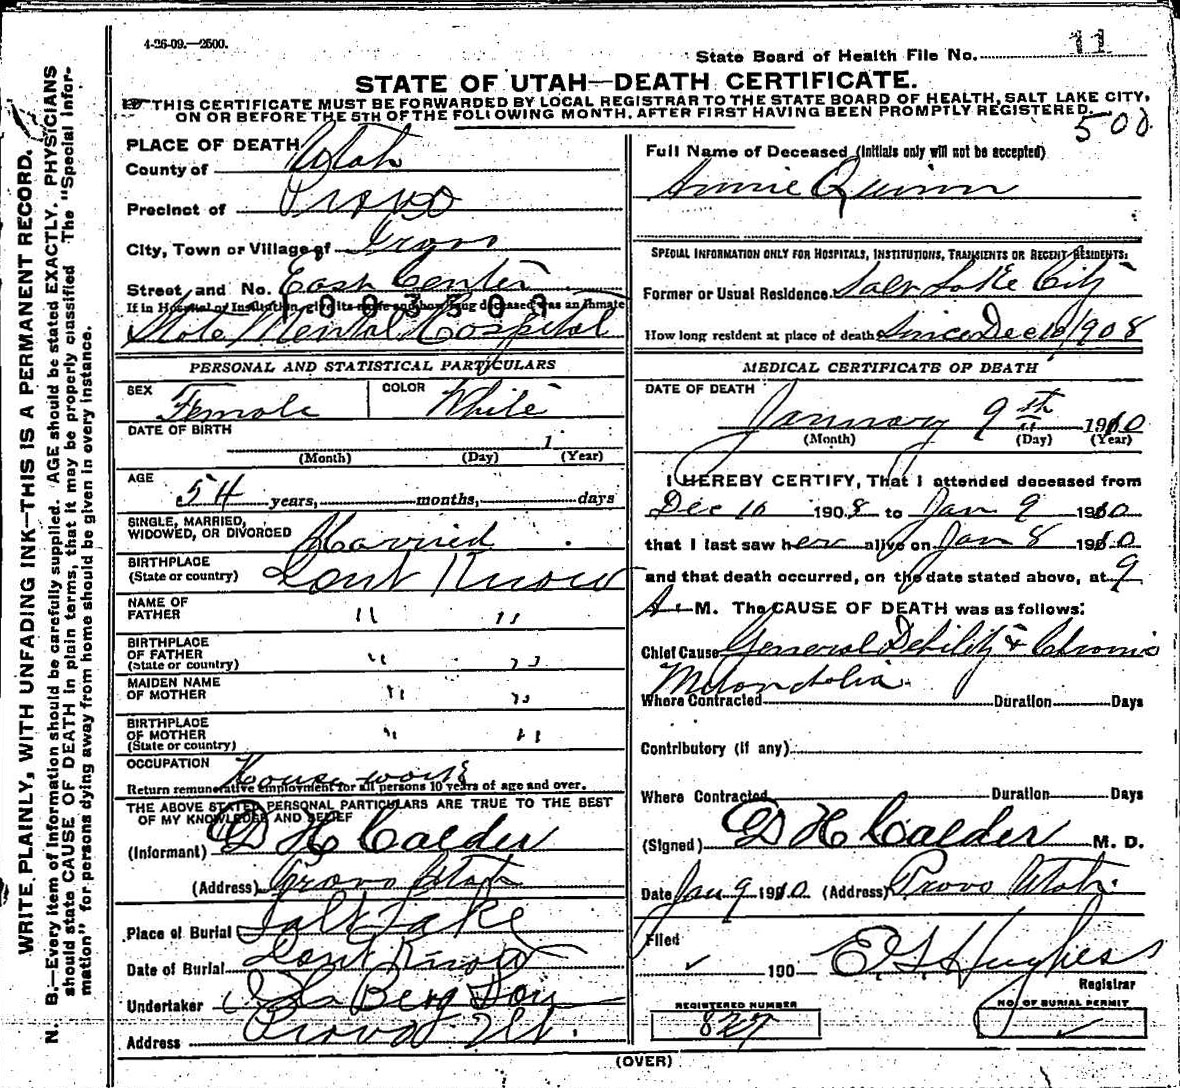 4-26-09.—2500.
State Board of Health File No. 11
STATE OF UTAH—DEATH CERTIFICATE.
THIS CERTIFICATE MUST BE FORWARDED BY LOCAL REGISTRAR TO THE STATE BOARD OF HEALTH, SALT LAKE CITY,
ON OR BEFORE THE 5TH OF THE FOLLOWING MONTH, AFTER FIRST HAVING BEEN PROMPTLY REGISTERED.
500
WRITE PLAINLY, WITH UNFADING INK—THIS IS A PERMANENT RECORD.
N. B.—Every item of information should be carefully supplied. AGE should be stated EXACTLY. PHYSICIANS
should state CAUSE OF DEATH in plain terms, that it may be properly classified. The "Special Infor-
mation" for persons dying away from home should be given in every instance.
PLACE OF DEATH
County of Utah
Precinct of Provo
City, Town or Village of Provo
Street and No. East Center
If in Hospital or Institution, give its name and how long deceased was an inmate
1003500
State Mental Hospital
PERSONAL AND STATISTICAL PARTICULARS
SEX Female COLOR White
DATE OF BIRTH
1
(Month) (Day) (Year)
AGE
54 years, months, days
SINGLE, MARRIED,
WIDOWED, OR DIVORCED Married
BIRTHPLACE
(State or country) Dont Know
NAME OF
FATHER " "
BIRTHPLACE
OF FATHER
(State or country) " "
MAIDEN NAME
OF MOTHER " "
BIRTHPLACE
OF MOTHER
(State or country) " "
OCCUPATION Housework
Return remunerative employment for all persons 10 years of age and over.
THE ABOVE STATED PERSONAL PARTICULARS ARE TRUE TO THE BEST
OF MY KNOWLEDGE AND BELIEF
(Informant) D H Calder
(Address) Provo Utah
Place of Burial Salt Lake
Date of Burial Dont Know
Undertaker Berg Son
Address Provo Ut.
Full Name of Deceased (Initials only will not be accepted)
Annie Quinn
SPECIAL INFORMATION ONLY FOR HOSPITALS, INSTITUTIONS, TRANSIENTS OR RECENT RESIDENTS:
Former or Usual Residence Salt Lake City
How long resident at place of death Since Dec 10/1908
MEDICAL CERTIFICATE OF DEATH
DATE OF DEATH
January 9th 1910
(Month) (Day) (Year)
I HEREBY CERTIFY, That I attended deceased from
Dec 10 1908 to Jan 9 1910
that I last saw her alive on Jan 8 1910
and that death occurred, on the date stated above, at 9
A. M. The CAUSE OF DEATH was as follows:
Chief Cause General Debility & Chronic
Melancholia
Where Contracted Duration Days
Contributory (if any)
Where Contracted Duration Days
(Signed) D H Calder M. D.
Date Jan 9 1910 (Address) Provo Utah
Filed
190 E S Hughes
Registrar
REGISTERED NUMBER
827
NO. OF BURIAL PERMIT
(OVER)